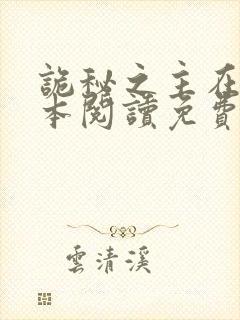 詭秘之主在
本閱讀免費
雲清溪